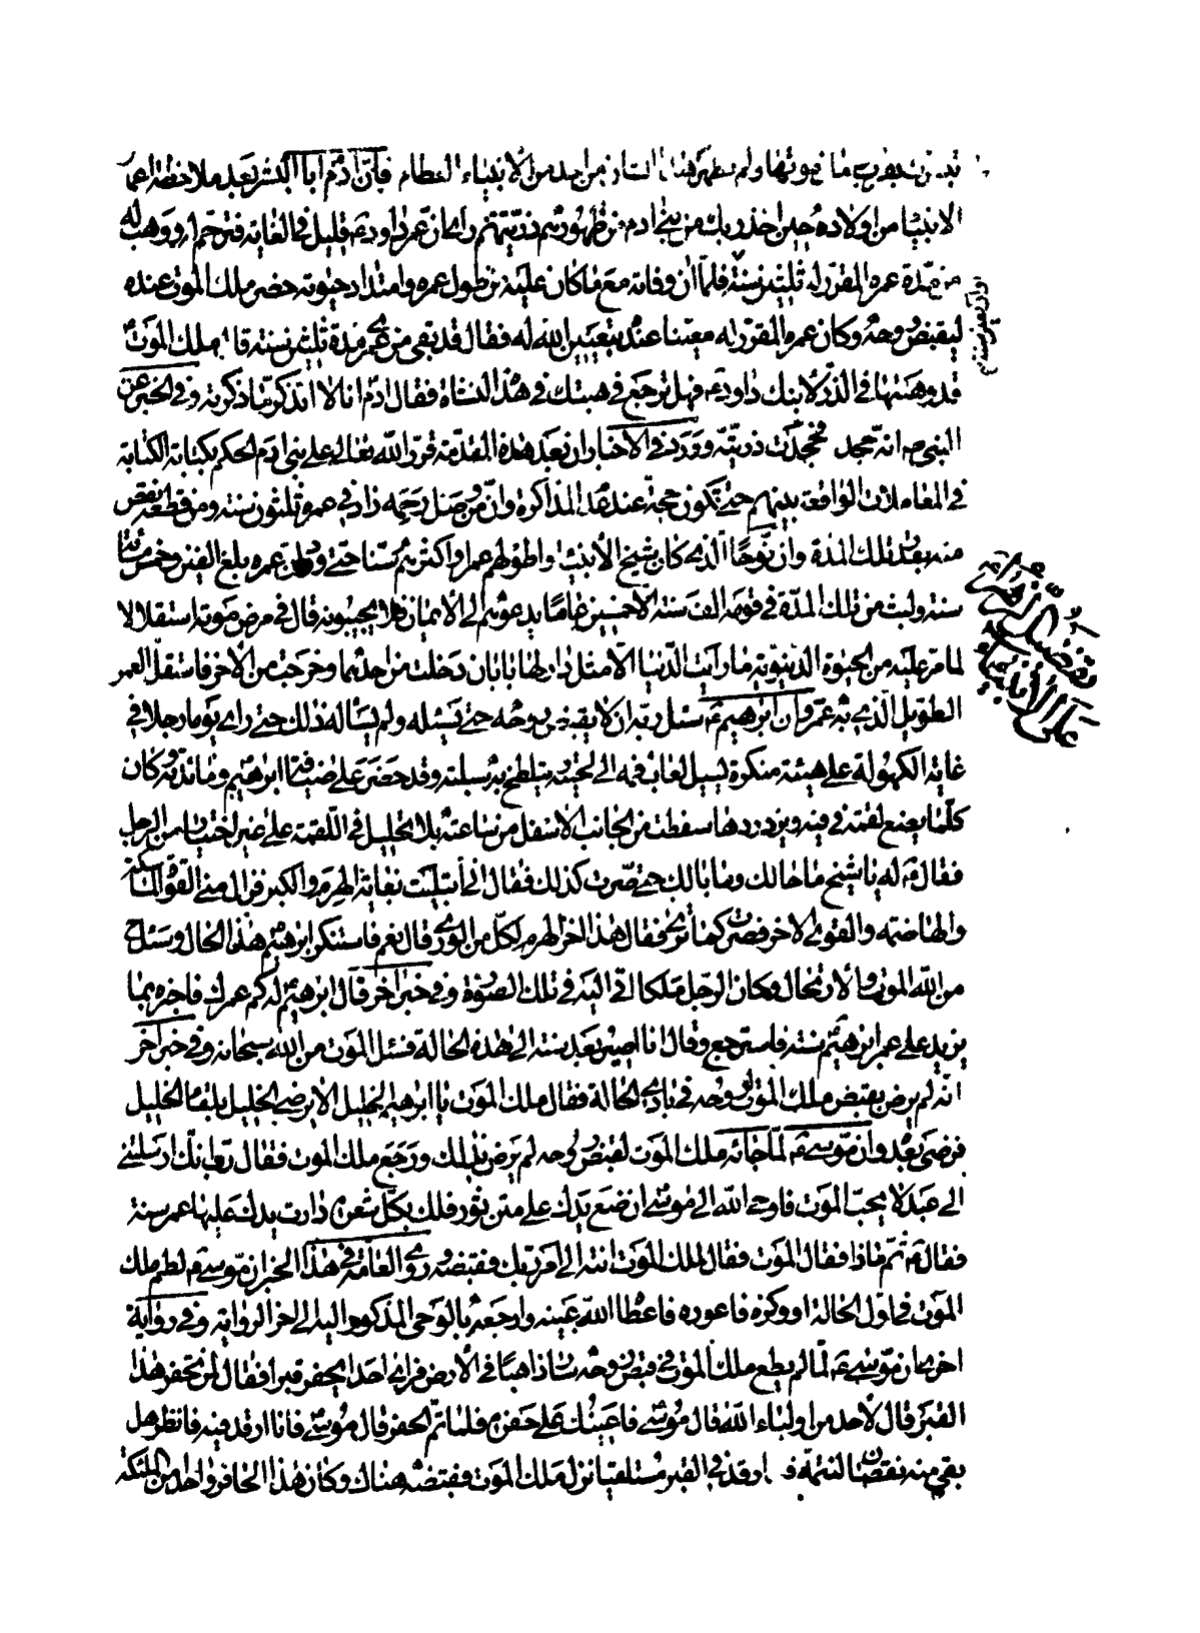 ولم يظهر هذا من احد من الانبياء العظام فان ادم ابا البشر بعد ملاحظة اعمار
الانبياء من اولاده حين اخذ ربك من بني ادم من ظهورهم ذريتهم راى ان عمر داود ع قليل في الغاية فترحم له ووهب له
من مدة عمره المقرر له ثلثين سنة فلما ان وفاته مع ما كان عليه من طول عمره وامتداد حيوته حضر ملك الموت عنده
ليقبض روحه وكان عمره المقرر له معينا عنده بتعيين الله له فقال قد بقى من عمرى مدة ثلثين سنة قال ملك الموت
قد وهبتها في الذر لابنك داود ع فهل ترجع في هبتك في هذه النشاة فقال ادم انا لا اتذكر ما ذكرته وفي الخبر عن
النبي ص انه جحد فجحدت ذريته ووردت في الاخبار ان بعد هذه المقدمة قرر الله تعالى على بني ادم الحكم بكتابة الكتابة
في المعاملات الواقعة بينهم حتى تكون حجة عند هذا المذاكرة وان من وصل رحمه زاد في عمره ثلثون سنة ومن قطعه نقص
منه بعد تلك المدة وان نوحا الذي كان شيخ الانبياء واطولهم عمرا واكثرهم سنا حتى ان عمره بلغ الفين وخمسمائة
سنة ولبث من تلك المدة في قومه الف سنة الا خمسين عاما يدعوهم الى الايمان فلا يجيبونه قال في مرض موته استقلالا
لما مر عليه من الحيوة الدنيوية ما رايت الدنيا الا مثل دار لها بابان دخلت من احدهما وخرجت من الاخر فاستقل العمر
الطويل الذي به عمر وان ابرهيم ع سئل ربه ان لا يقبض روحه حتى يسئله ولم يساله ذلك حتى راى يوما رجلا في
غاية الكهولة على هيئة منكرة يسيل لعاب فيه الى لحيته يتلطخ به سبلته وقد حضر على ضيافة ابرهيم ومائدته وكان
كلما يضع لقمته في فيه ويزدردها سقطت من الجانب الاسفل من ساعته بلا تحليل في اللقمة على غير اختيار من الرجل
فقال ع له يا شيخ ما حالك وما بالك حتى صرت كذلك فقال اني ابتليت بغاية الهرم والكبر فزال مني القوة الماسكة
والهاضمة والقوى الاخر فصرت كما ترى فقال هذا اخر الهرم لكل من الورى قال نعم فاستنكر ابرهيم هذا الحال وسئل
من الله الموت والارتحال وكان الرجل ملكا اتى اليه في تلك الصورة وفي خبر اخر قال ابرهيم له كم عمرك فاخبره بما
يزيد على عمر ابرهيم سنة فاسترجع وقال انا اصير بعد سنة الى هذه الحالة فسئل الموت من الله سبحانه وفي خبر اخر
انه لم يرض بقبض ملك الموت روحه في بادى الحالة فقال ملك الموت يا ابرهيم الخليل الا يرضى الخليل بلقاء الخليل
فرضى بعد وان موسى ع لما جائه ملك الموت لقبض روحه لم يرض بذلك ورجع ملك الموت فقال رب انك ارسلتني
الى عبد لا يحب الموت فاوحى الله الى موسى ان ضع يدك على متن ثور فلك بكل شعرة دارت يدك عليها عمر سنة
فقال ع ثم ماذا فقال الموت فقال لملك الموت انته الى امر ربك فقبضه وروى العامة في هذا الخبر ان موسى ع لطم ملك
الموت في اول الحالة او وكزه فاعوره فاعطاه الله عينه وارجعه بالوحى المذكور اليه الى اخر الرواية وفي رواية
اخرى ان موسى ع لما لم يطع ملك الموت في قبض روحه سار ذاهبا في الارض فراى احدا يحفر قبرا فقال لمن تحفر هذا
القبر قال لاحد من اولياء الله قال موسى فاعينك على حفره فلما تم الحفر قال موسى فانا ارقد فيه فانظر هل
بقى منه نقصان لنتمه ورقد في القبر مستلقيا نزل ملك الموت فقبضه هناك وكان هذا الحافر واحد من الملئكة